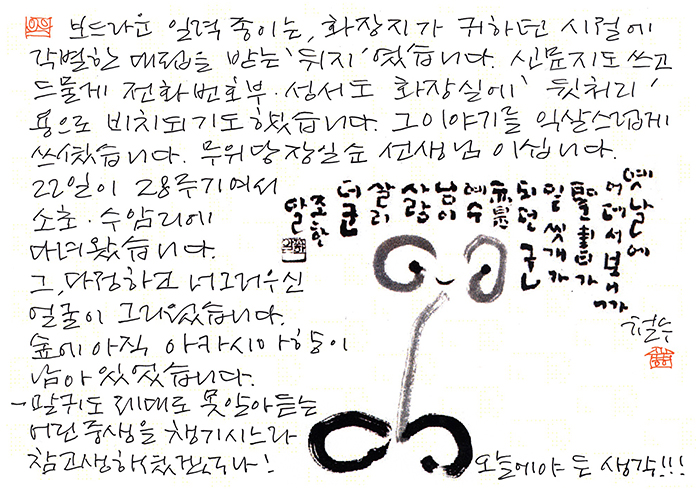 보드라운 일력 종이는, 화장지가 귀하던 시절에
각별한 대접을 받는 '뒤지'였습니다. 신문지도 쓰고
드물게 전화번호부·성서도 화장실에 '뒷처리'
용으로 비치되기도 했습니다. 그이야기를 익살스럽게
쓰셨습니다. 무위당 장일순 선생님이십니다.
22일이 28주기여서
소초·수암리에
다녀왔습니다.
그, 다정하고 너그러우신
얼굴이 그리웠습니다.
숲에 아직 아카시아향이
남아있었습니다.
-말귀도 제대로 못알아듣는
어린중생을 챙기시느라
참고생하셨겠구나!
오늘에야 든 생각!!!
옛날에
어데서 보니까
聖書가
밑씻개가
되던군
亦是
예수
님이
사람
살리
더군
조한
알
철수